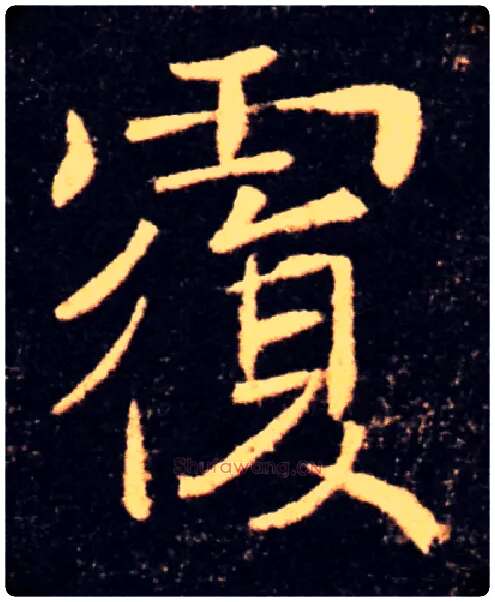 覆
Shufawang.cn